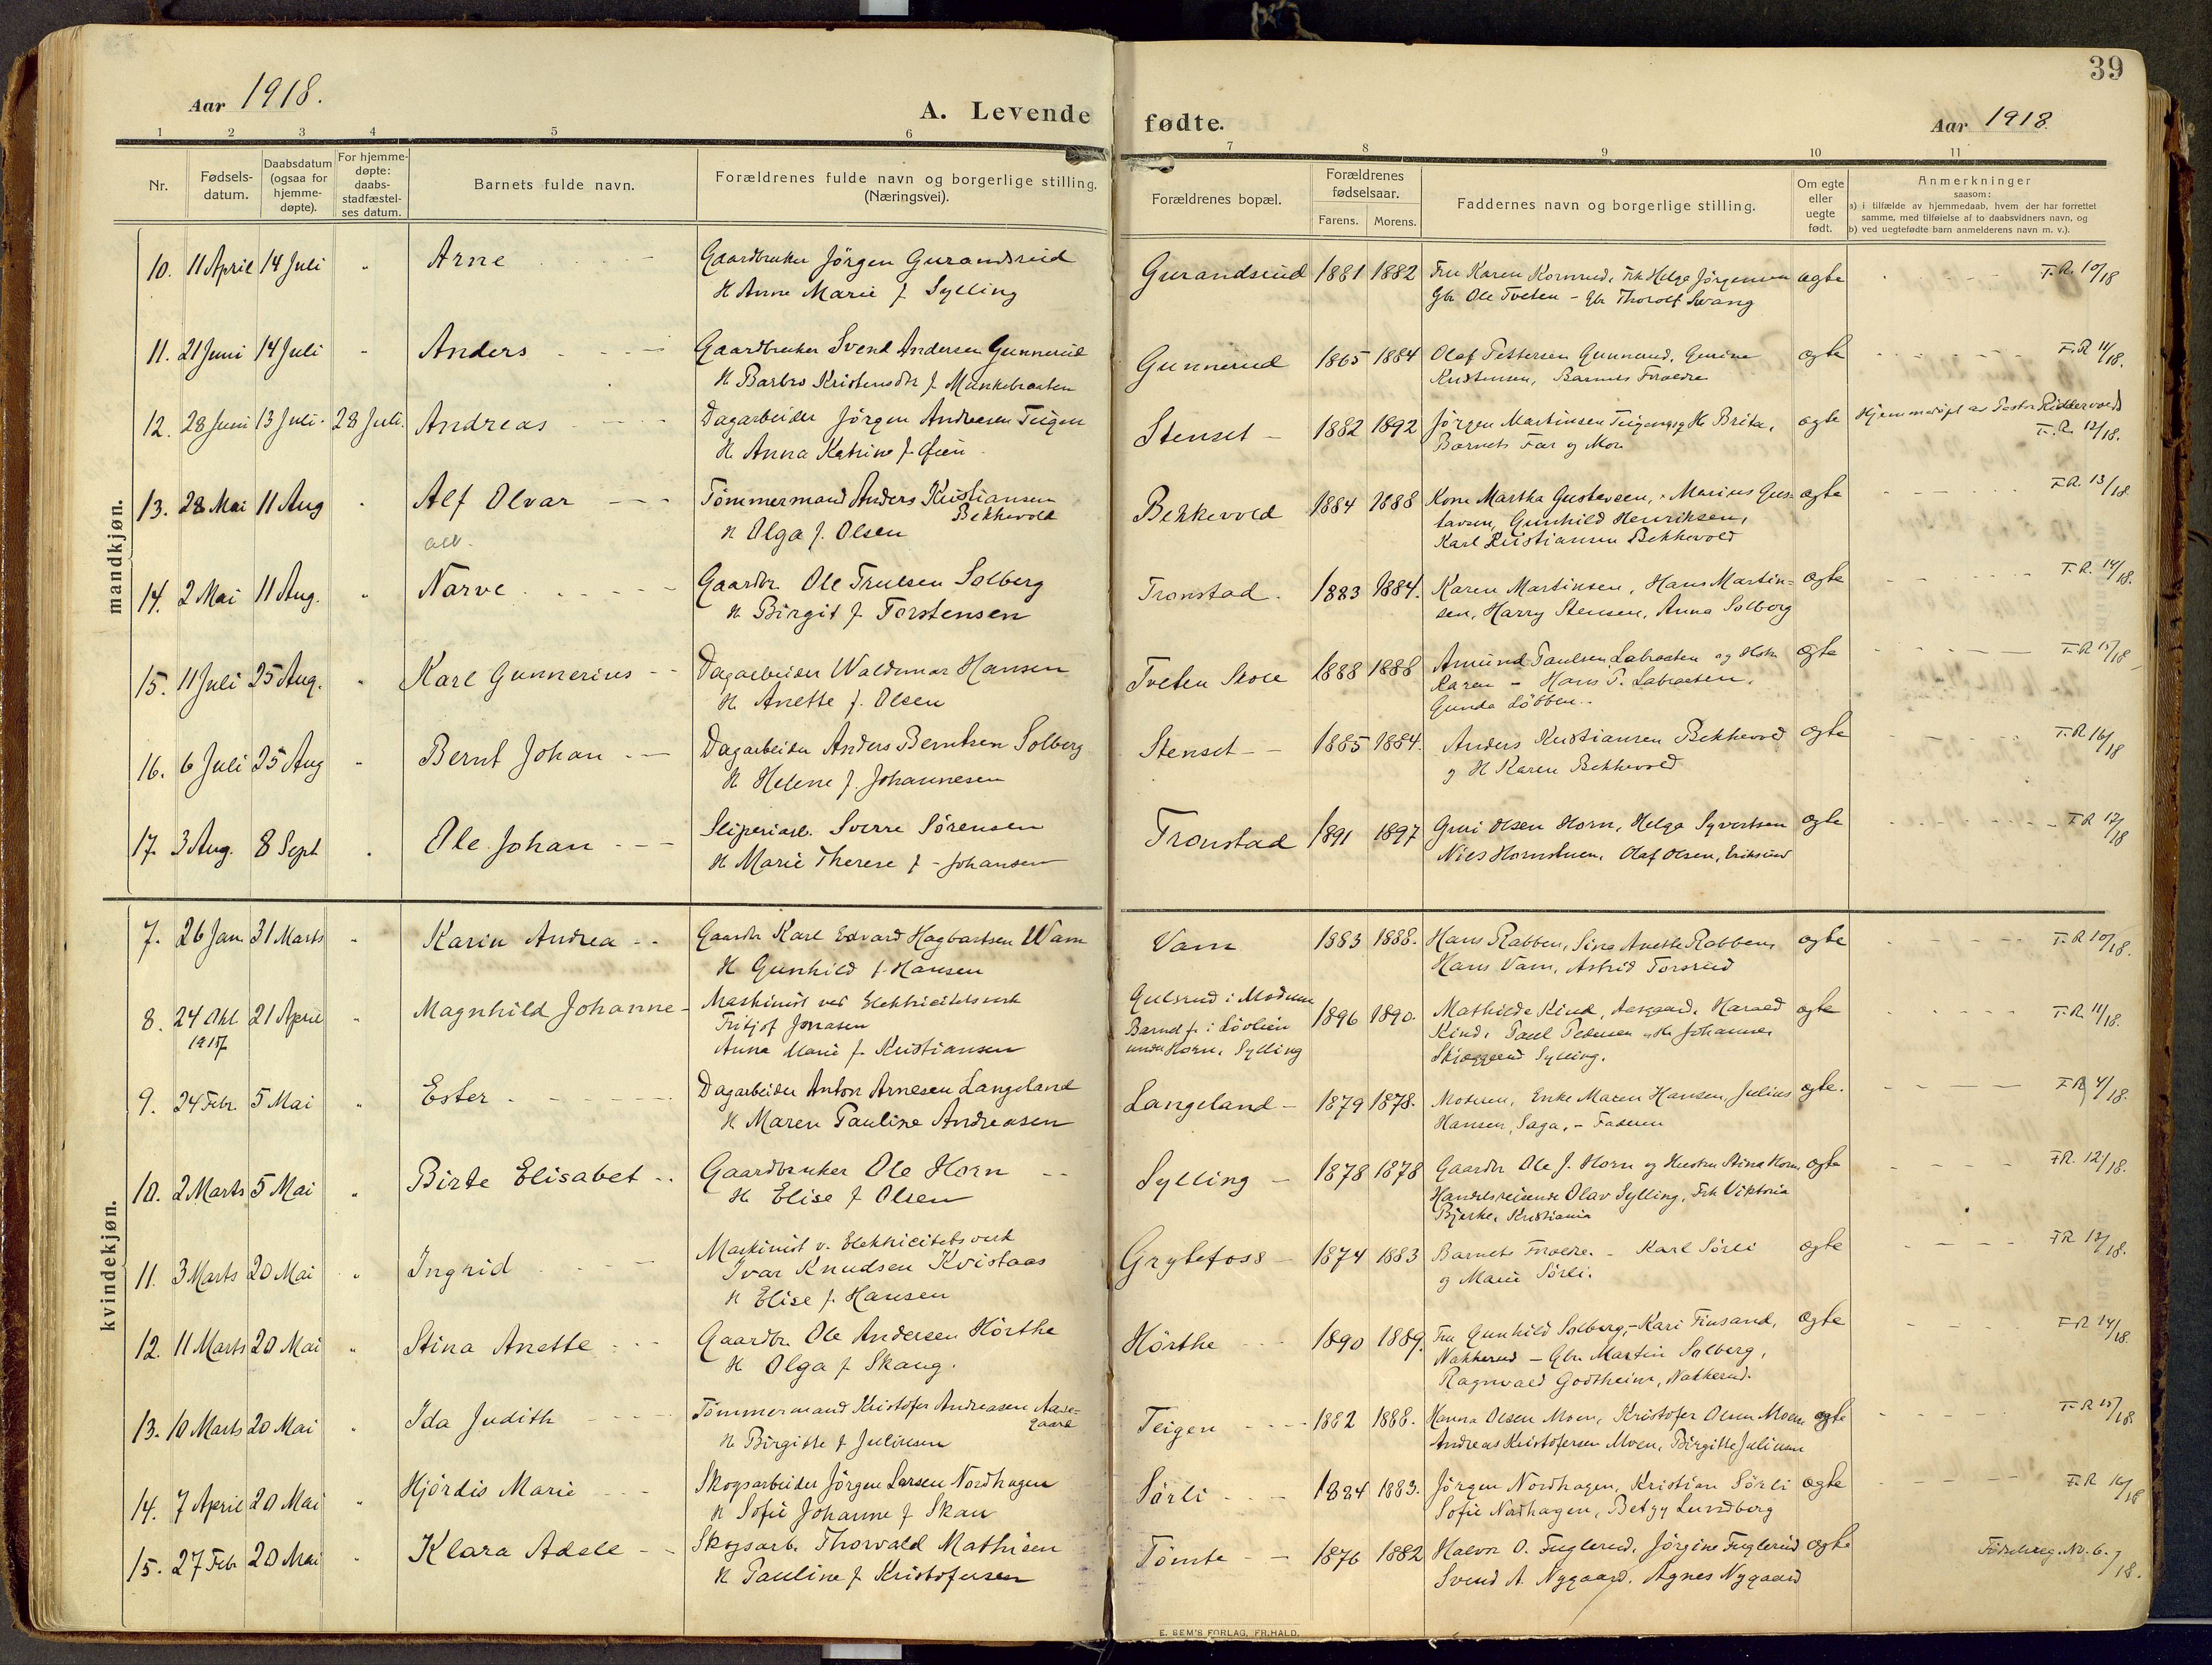 39
Aar 1918.
A. Levende fødte.
Aar 1918.
1 2 3 4 5 6 7 8 9 10 11
Nr.
Fødsels-
datum.
Daabsdatum
(ogsaa for
hjemme-
døpte).
For hjemme-
døpte:
daabs-
stadfæstel-
ses datum.
Barnets fulde navn.
Forældrenes fulde navn og borgerlige stilling.
(Næringsvei).
Forældrenes bopæl.
Forældrenes
fødselsaar.
Farens. Morens.
Faddernes navn og borgerlige stilling.
Om egte
eller
uegte
født.
Anmerkninger
saasom:
a) i tilfælde av hjemmedaab, hvem der har forrettet
samme, med tilføielse af to daabsvidners navn, og
b) ved uegtefødte barn anmelderens navn m. v.).
mandkjøn.
10. 11 April 14 Juli " Arne
Gaardbruker Jörgen Gurandsrud
H Anne Marie f. Sylling
Gurandsrud 1881 1882
Fru Karen Kornrud, Frk Helga Jörgensen
Gbr Ole Tveten - Gbr Thorolf Svang
egte
F.R. 10/18
11. 21 Juni 14 Juli " Anders
Gaardbruker Svend Andersen Gunnerud
H Barbro Kristensdtr f. Munkebraaten
Gunnerud 1865 1884
Olaf Pettersen Gunnerud, Gurine
Kristensen, Barnets Forældre
egte
F.R 11/18.
12. 28 Juni 13 Juli. 28 Juli. Andreas
Dagarbeider Jörgen Andresen Teigen
H. Anna Katrine f. Øien
Stenset 1882 1892
Jörgen Martinsen Teigen og H. Brita,
Barnets Far og Mor
egte
Hjemmedöpt av Pastor Riddervold
F.R. 12/18.
13. 28 Mai 11 Aug " Alf Olvar
Tömmermand Anders Kristiansen
Bekkevold
H Olga f. Olsen
Bekkevold 1884 1888
Kone Martha Gustavsen, Marius Gus-
tavsen, Gunhild Henriksen,
Karl Kristiansen Bekkevold
egte
F.R. 13/18
14. 2 Mai 11 Aug. " Narve
Gaardbr. Ole Trulsen Solberg
H. Birgit f. Torstensen
Tronstad. 1883 1884.
Karen Martinsen, Hans Martin-
sen, Harry Stensen, Anna Solberg
egte
F.R. 14/18.
15. 11 Juli 25 Aug. " Karl Gunnerius
Dagarbeider Waldemar Hansen
H. Anette f. Olsen
Tveten Skole 1888 1888
Amund Paulsen Labraaten og Hstr
Karen - Hans P. Labraaten,
Gunda Löbben.
egte
F.R 15/18
16. 6 Juli 25 Aug " Bernt Johan
Dagarbeider Anders Berntsen Solberg
H. Helene f. Johannesen
Stenset 1885 1884.
Anders Kristiansen Bekkevold
og H Karen Bekkevold
egte
F.R 16/18
17. 3 Aug. 8 Sept " Ole Johan
Sliperiarb. Sverre Sörensen
H. Marie Therese f - Johansen
Tronstad 1891 1897
Guri Olsen Horn, Helga Syvertsen
Nils Hornstuen, Olaf Olsen, Eriksrud
egte
F.R 17/18
kvindekjøn.
7. 26 Jan 31 Marts " Karin Andrea
Gaardbr Karl Edvard Hagbartsen Wam
H Gunhild f. Hansen
Vam 1883 1888.
Hans Rabben, Sina Anette Rabben,
Hans Vam, Astrid Torsrud
egte
F.R 10/18.
8. 24 Okt 1917 21 April " Magnhild Johanne
Maskinist ved Elektricitetsverk
Fritjof Jonasen
Anna Marie f. Kristiansen
Gulsrud i Modum
Barnet f. i Lövlien
under Horn, Sylling
1896 1890.
Mathilde Kind, Aasgaard, Harald
Kind, Paul Pedersen og H. Johanne,
Skjæggerud Sylling.
egte
F.R. 11/18.
9. 24 Febr. 5 Mai " Ester
Dagarbeider Anton Arnesen Langeland
H Maren Pauline Andreasen
Langeland 1879 1878.
Moderen, Enke Maren Hansen, Julius
Hansen, Saga, - Faderen
egte.
F.R 4/18.
10. 2 Marts 5 Mai " Birte Elisabet
Gaardbruker Ole Horn
H Elise f Olsen
Sylling 1878 1878
Gaardbr Ole J. Horn og Hustru Stina Horn,
Handelsreisende Olav Sylling, Frk Viktoria
Bjerke, Kristiania
egte
F.R. 12/18.
11. 3 Marts 20 Mai " Ingrid
Maskinist v. Elektricitetsverk
Ivar Knudsen Kvistaas
H Elise f. Hansen
Grytefoss 1874 1883
Barnets Forældre. - Karl Sörli
og Marie Sörli.
egte
F.R. 13/18.
12. 11 Marts 20 Mai " Stina Anette
Gaardbr. Ole Andersen Hörthe
H Olga f Skaug.
Hörthe 1890 1889.
Fru Gunhild Solberg, - Kari Finsand,
Nakkerud - Gbr. Martin Solberg,
Ragnvald Godtheim, Nakkerud.
egte
F.R 14/18
13. 10 Marts 20 Mai " Ida Judith
Tömmermand Kristofer Andreasen Aase-
gaard
H. Birgitte f Juliussen
Teigen 1882 1888.
Hanna Olsen Moen, Kristofer Olsen Moen
Andreas Kristofersen Moen, Birgitte Juliussen
egte
F.R 15/18
14. 7 April 20 Mai " Hjördis Marie
Skogsarbeider Jörgen Larsen Nordhagen
H Sofie Johanne f Skau
Sörli 1884 1883.
Jörgen Nordhagen, Kristian Sörli
Sofie Nordhagen, Betzy Lundberg
egte
F.R 16/18
15. 27 Febr 20 Mai " Klara Adele
Skogsarb. Thorvald Mathisen
H Pauline f Kristofersen
Tömte 1876 1882
Halvor O. Fuglerud, Jörgine Fuglerud
Svend A. Nygaard, Agnes Nygaard
egte
Födselsreg. No. 6. 7/18.
E. SEM'S FORLAG, FR.HALD.